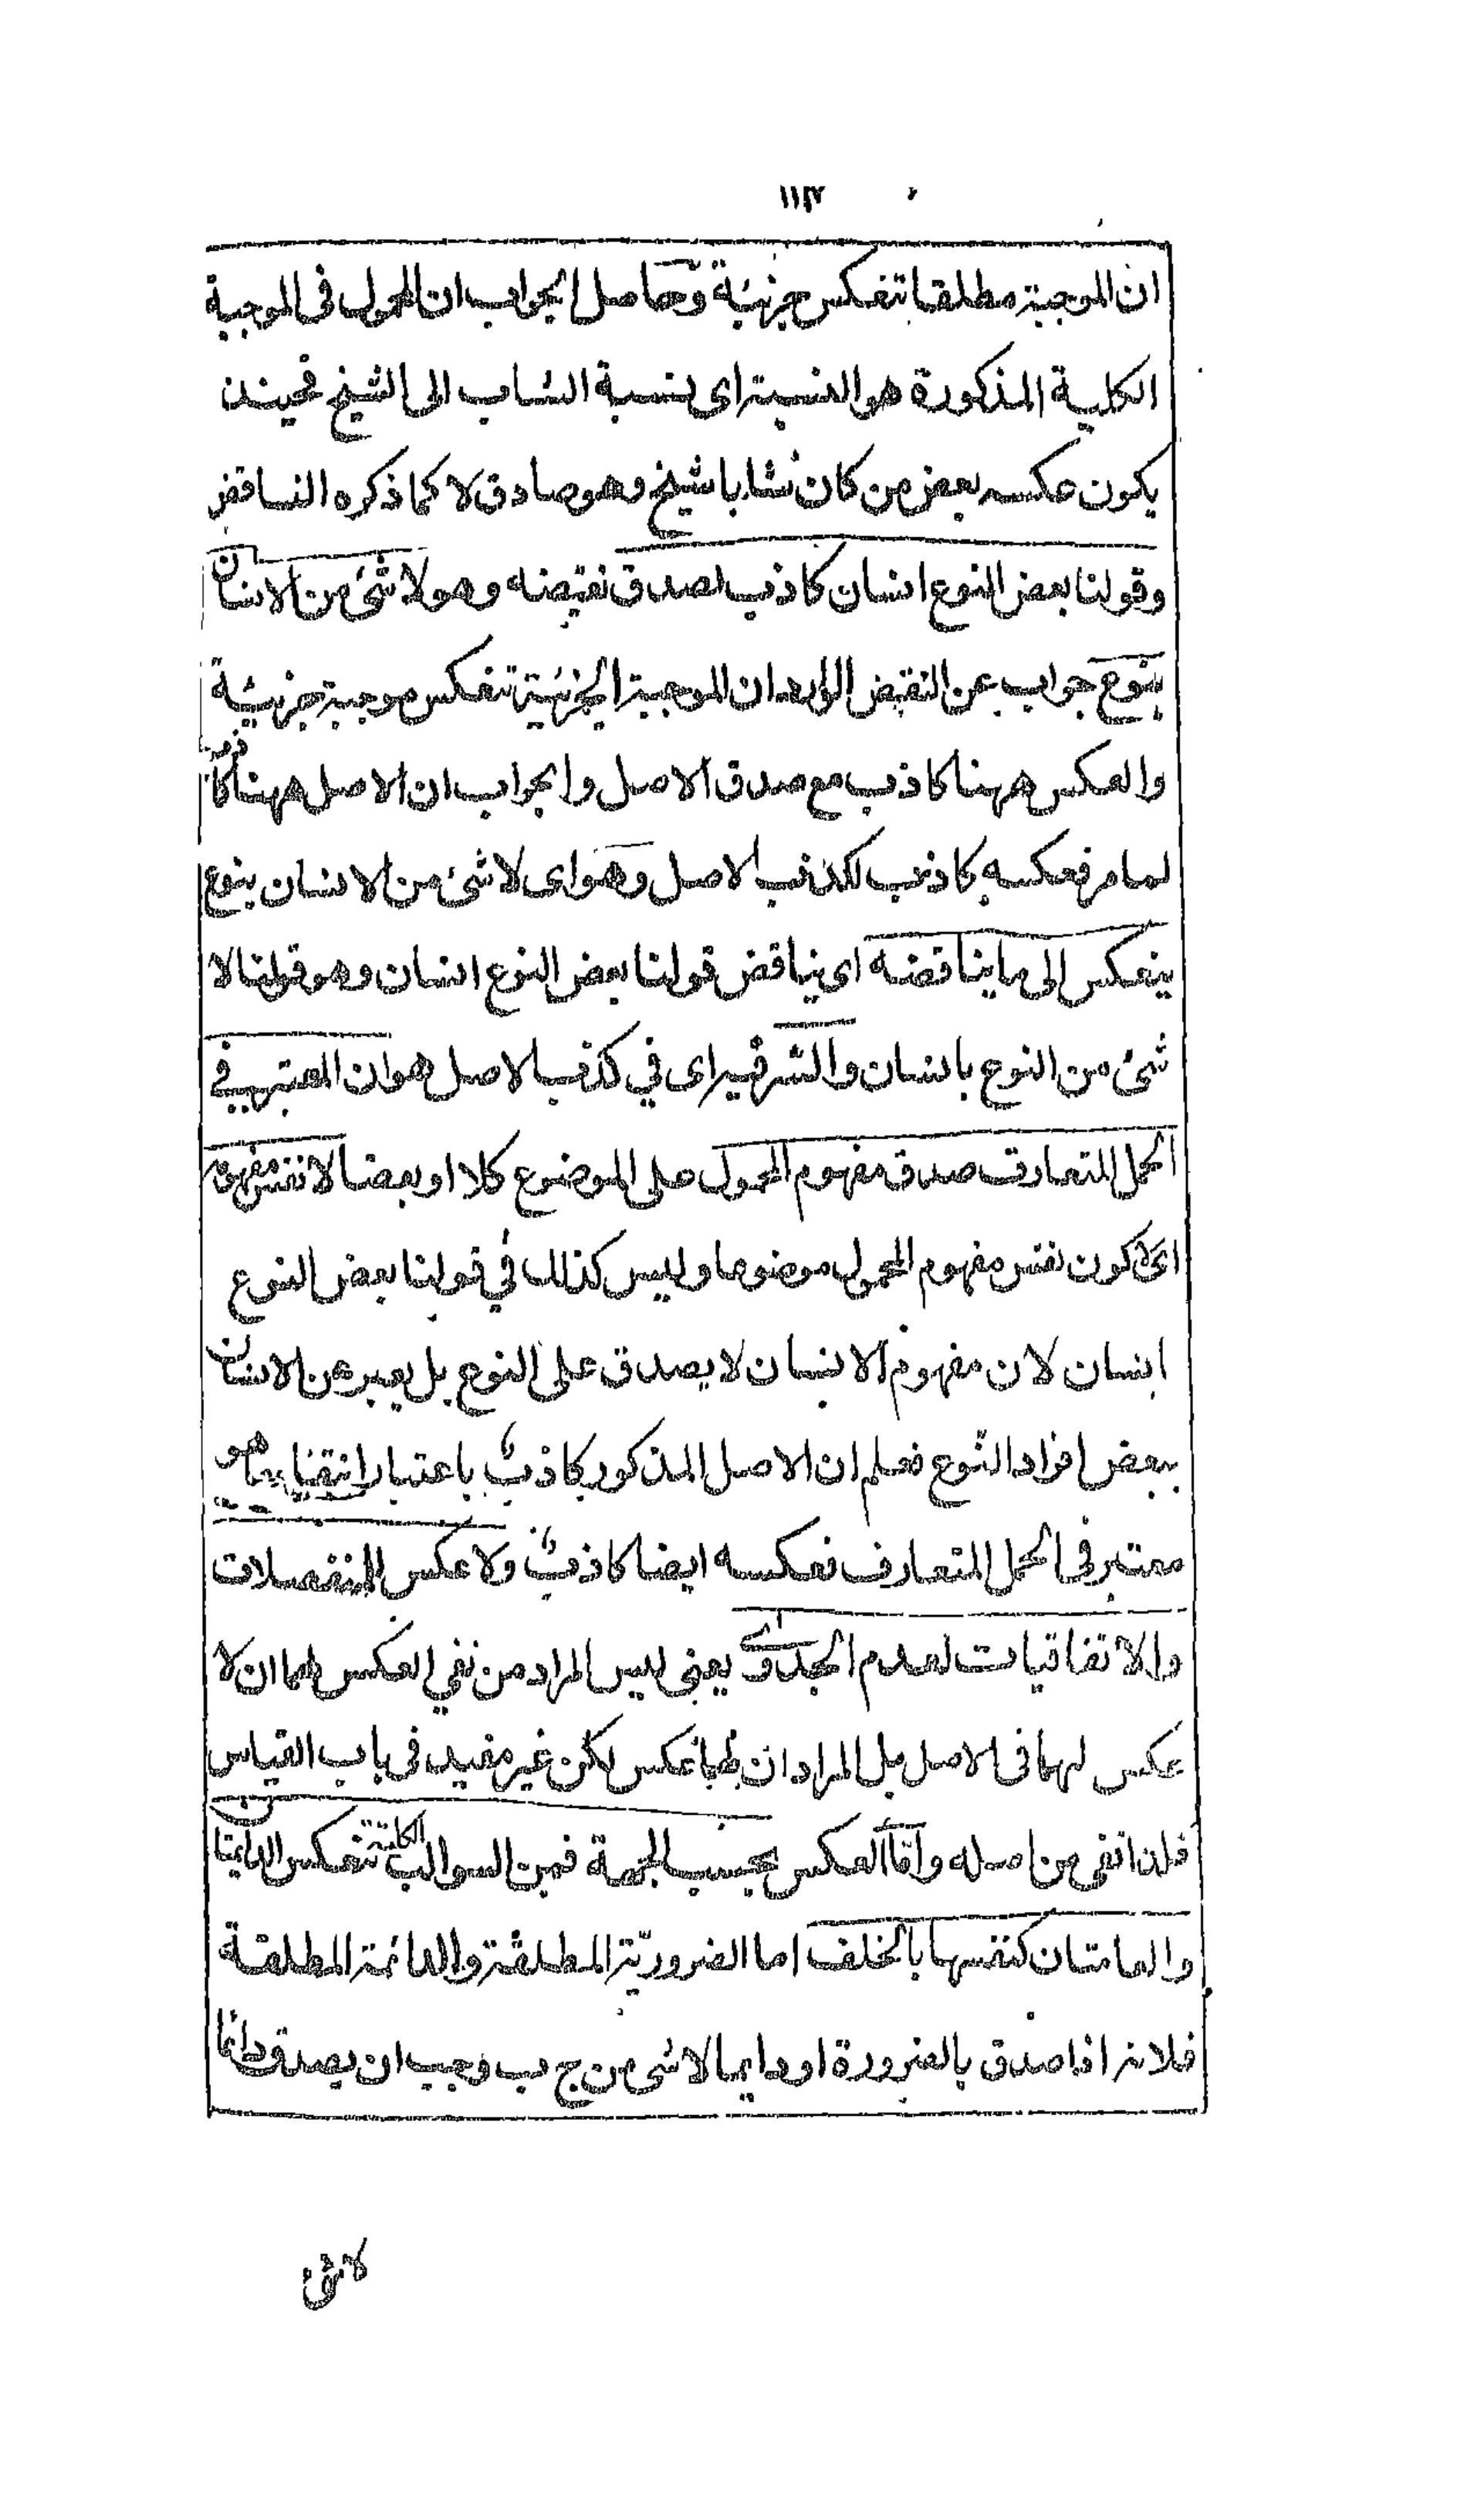 ١١٧
ان الموجبة مطلقا تنعكس جزئية وحاصل الجواب ان المحمول فى الموجبة
الكلية المذكورة هو النسبة اى نسبة الشاب الى الشيخ فحينئذ
يكون عكسه بعض من كان شابا شيخ وهو صادق لا كما ذكره الناقض
وقولنا بعض النوع انسان كاذب لصدق نقيضه وهو لا شئ من الانسان
بنوع جواب عن النقيض الوارد ان الموجبة الجزئية تنعكس موجبة جزئية
والعكس ههنا كاذب مع صدق الاصل والجواب ان الاصل ههنا كاذب
لما مر فعكسه كاذب لكذب الاصل وهو اى لا شئ من الانسان بنوع
ينعكس الى ما يناقضه اى يناقض قولنا بعض النوع انسان وهو قولنا لا
شئ من النوع بانسان والسر فيه اى في كذب الاصل هو ان المعتبر في
الحمل المتعارف صدق مفهوم المحمول على الموضوع كلا او بعضا لا نفس مفهومه
اى لا كون نفس مفهوم المحمول موضوعا وليس كذلك في قولنا بعض النوع
انسان لان مفهوم الانسان لا يصدق على النوع بل يعبر عن الانسان
ببعض افراد النوع فعلم ان الاصل المذكور كاذب باعتبار انتفاء ما هو
معتبر في الحمل المتعارف فعكسه ايضا كاذب ولا عكس للمنفصلات
والاتفاقيات لعدم الجدوى يعنى ليس المراد من نفي العكس لهما ان لا
عكس لهما فى الاصل بل المراد ان لهما عكس لكن غير مفيد فى باب القياس
فلذا نفى من اصله واما العكس بحسب الجهة فمن السوالب الكلية تنعكس الدائمتان
والعامتان كنفسها بالخلف اما الضرورية المطلقة والدائمة المطلقة
فلانه اذا صدق بالضرورة او دايما لا شئ من ج ب وجب ان يصدق دائما
لا شئ